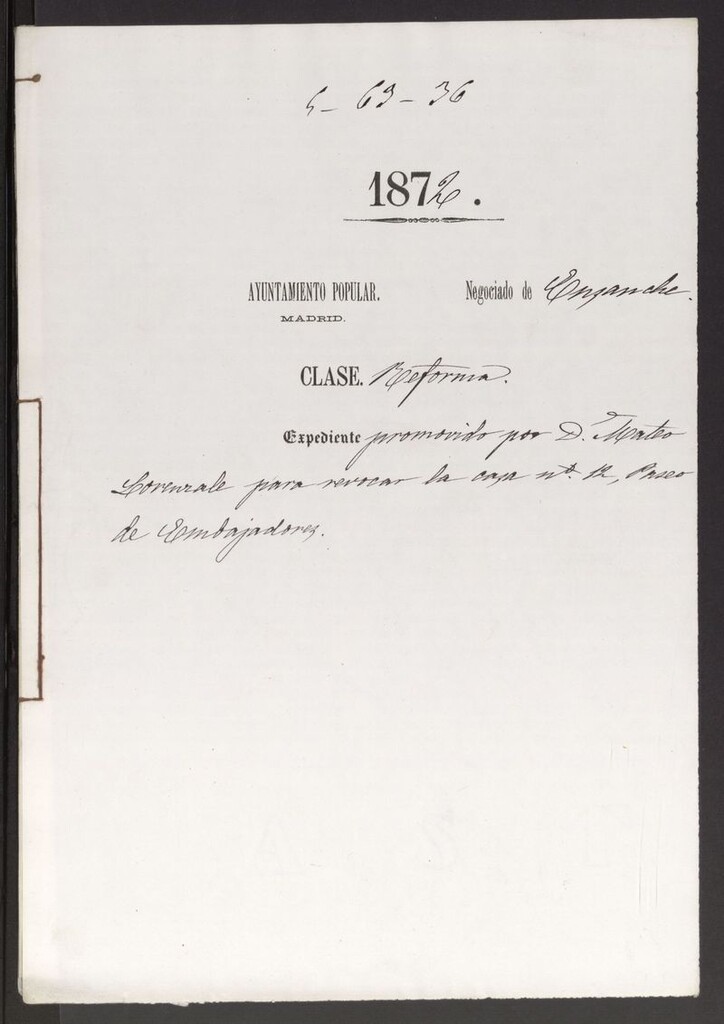 5-63-36
1872.
AYUNTAMIENTO POPULAR. Negociado de Ensanche.
MADRID.
CLASE. Reforma.
Expediente promovido por D. Mateo
Lorenzale para revocar la casa nº. 12, Paseo
de Embajadores.